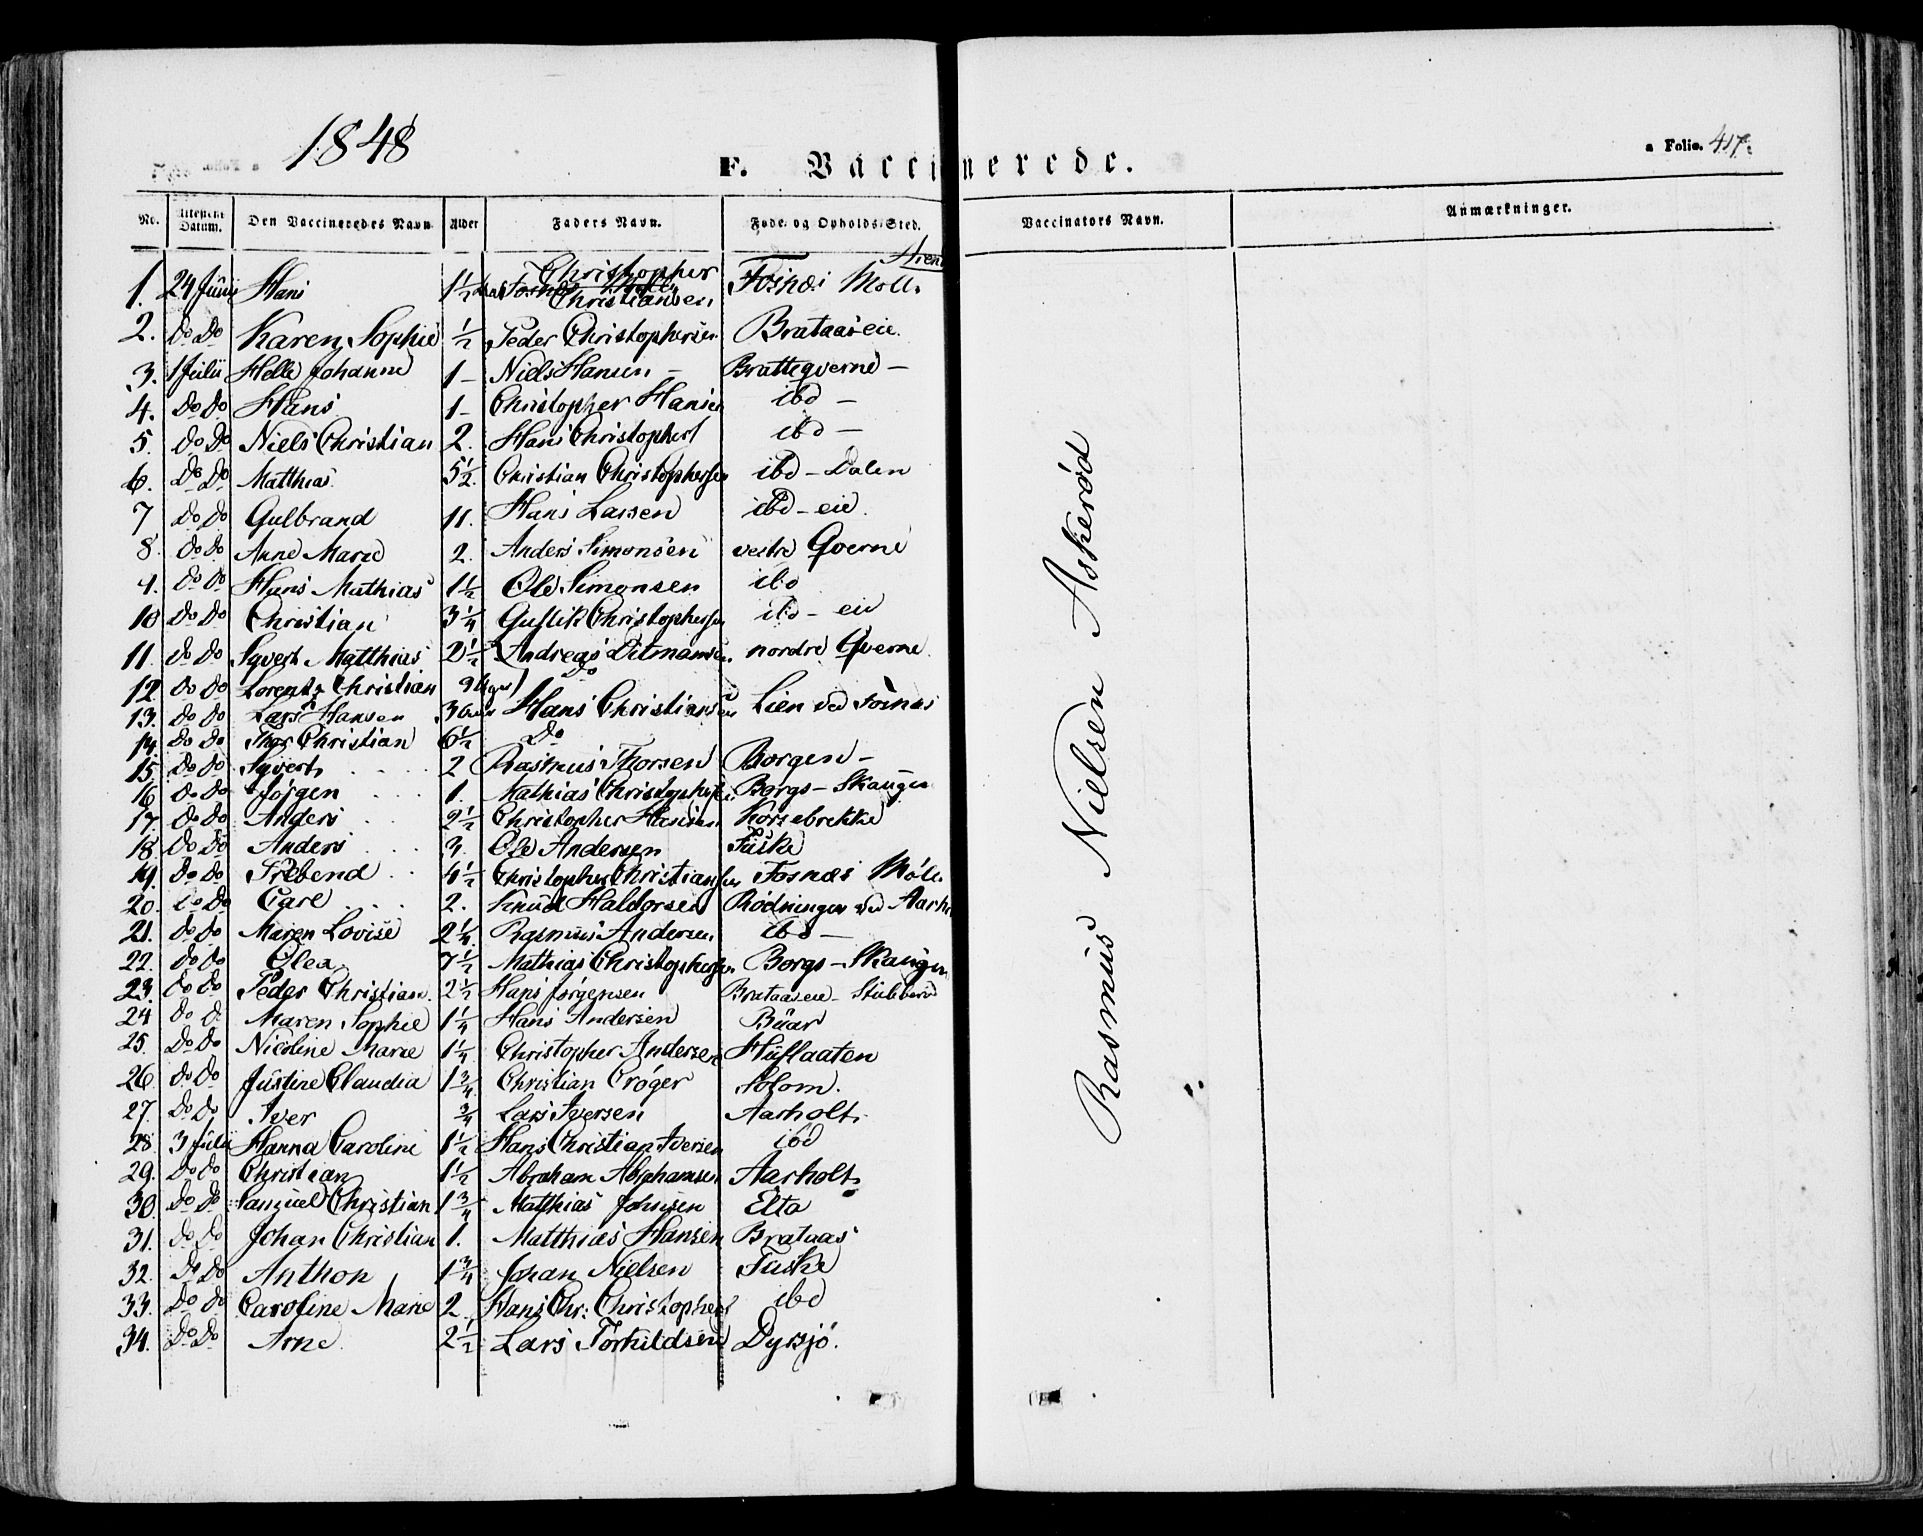 1848
F. Vaccinerede.
a Folio. 417.
No. Attestens Datum. Den Vaccineredes Navn Alder Faders Navn. Føde- og Opholds-Sted. Vaccinators Navn. Anmærkninger.
1. 24 Juni Hans 1½ Christopher Christiansen Fosnæs Moll.
2. Do Do Karen Sophie ½ Peder Christophersen Brataaseie.
3. 1 Julii Helle Johanne 1 – Niels Hansen – Bratteqverne –
4. Do Do Hans 1 – Christopher Hansen ibd –
5. Do Do Niels Christian 2. Hans Christophers ibd –
6. Do Do Matthias 5½. Christian Christophersen ibd – Dalen
7 Do Do Gulbrand 11. Hans Larsen ibd – eie.
8. Do Do Anne Marie 2. Anders Simonsen vestre Qverne
9. Do Do Hans Mathias 1½ Ole Simonsen ibd
10 Do Do Christian 3¼ Guslik Christophersen ibd – eie
11. Do Do Syvert Matthias 2½ Andreas Ditmansen nordre Qverne.
12. Do Do Lorentz Christian 9 Uger Do
13. Do Do Lars Hansen 36 Hans Christiansen Lien ved Fosnæs
14. Do Do Thor Christian 6½ Do
15. Do Do Syvert 2 Rasmus Thorsen Borgen –
16 Do Do Jørgen 1. Mathias Christophersen Borgs – Skaugen
17. Do Do Anders 2½ Christopher Hansen Korsebrekke
18. Do Do Anders 3. Ole Andersen Fuske
19. Do Do Trebend 4½ Christopher Christiansen Fosnæs Möll.
20. Do Do Carl 2. Knud Haldorsen Rødningen ved Aarh
21. Do Do Maren Lovise 2¼ Rasmus Andersen ibd –
22. Do Do Olea 7½ Mathias Christophersen Borgs – Skaugen
23. Do Do Peder Christian. 2½ Hans Jørgensen Brataaseie – Stubberud
24 Do Do Maren Sophie 1¼ Hans Andersen Buar
25. Do Do Nicoline Marie 1¼ Christopher Andersen Huflaaten
26. Do Do Justine Claudia 1¾ Christian Crøger Solom.
27. Do Do Iver ¾ Lars Iversen Aarholt.
28. 3 Julii Hanna Caroline 1½ Hans Christian Iversen ibd
29. Do Do Christian 1½ Abraham Abrahamsen Aarholt.
30. Do Do Samuel Christian 1¾ Matthias Johnsen Elta
31. Do Do Johan Christian 1. Matthias Hansen Brataas
32. Do Do Anthon 1¾ Johan Nielsen Fuske
33. Do Do Caroline Marie 2. Hans Chr: Christophers ibd
34. Do Do Arne 2½ Lars Torkildsen Dyrsjø.
Rasmus Nielsen Askerød